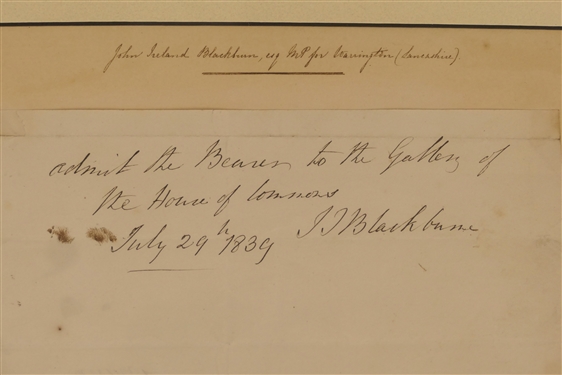 John Ireland Blackburn, esq MP for Warrington (Lancashire)
admit the Bearer to the Gallery of
the House of Commons
July 29th 1839 J I Blackburne